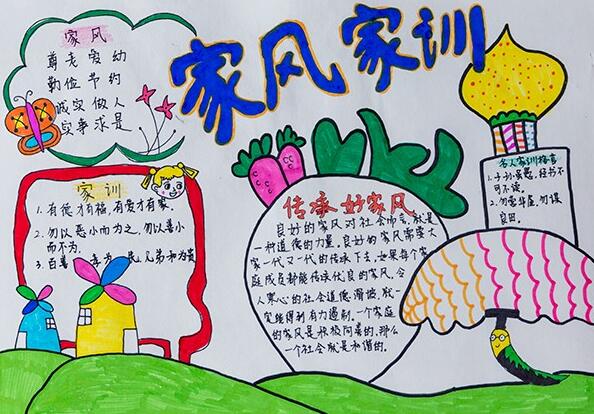 家风家训
家风
尊老爱幼
勤俭节约
诚实做人
实事求是
家训
1.有德才有福,有爱才有家
2.勿以恶小而为之,勿以善小
而不为。
3.百善
兄弟和为贵
传承好家风
良好的家风对社会而言,就是
一种道德的力量。良好的家风需要大
家一代又一代的传承下去,如果每个家
庭成员都能传承优良的家风,令
人寒心的社会道德滑坡,就一
定能得到有力遏制。一个家庭
的家风是积极向善的,那么
一个社会就是和谐的。
名人家训格言
1.子孙虽愚,经书不
可不读。
2.勿营华屋,勿谋
良田。